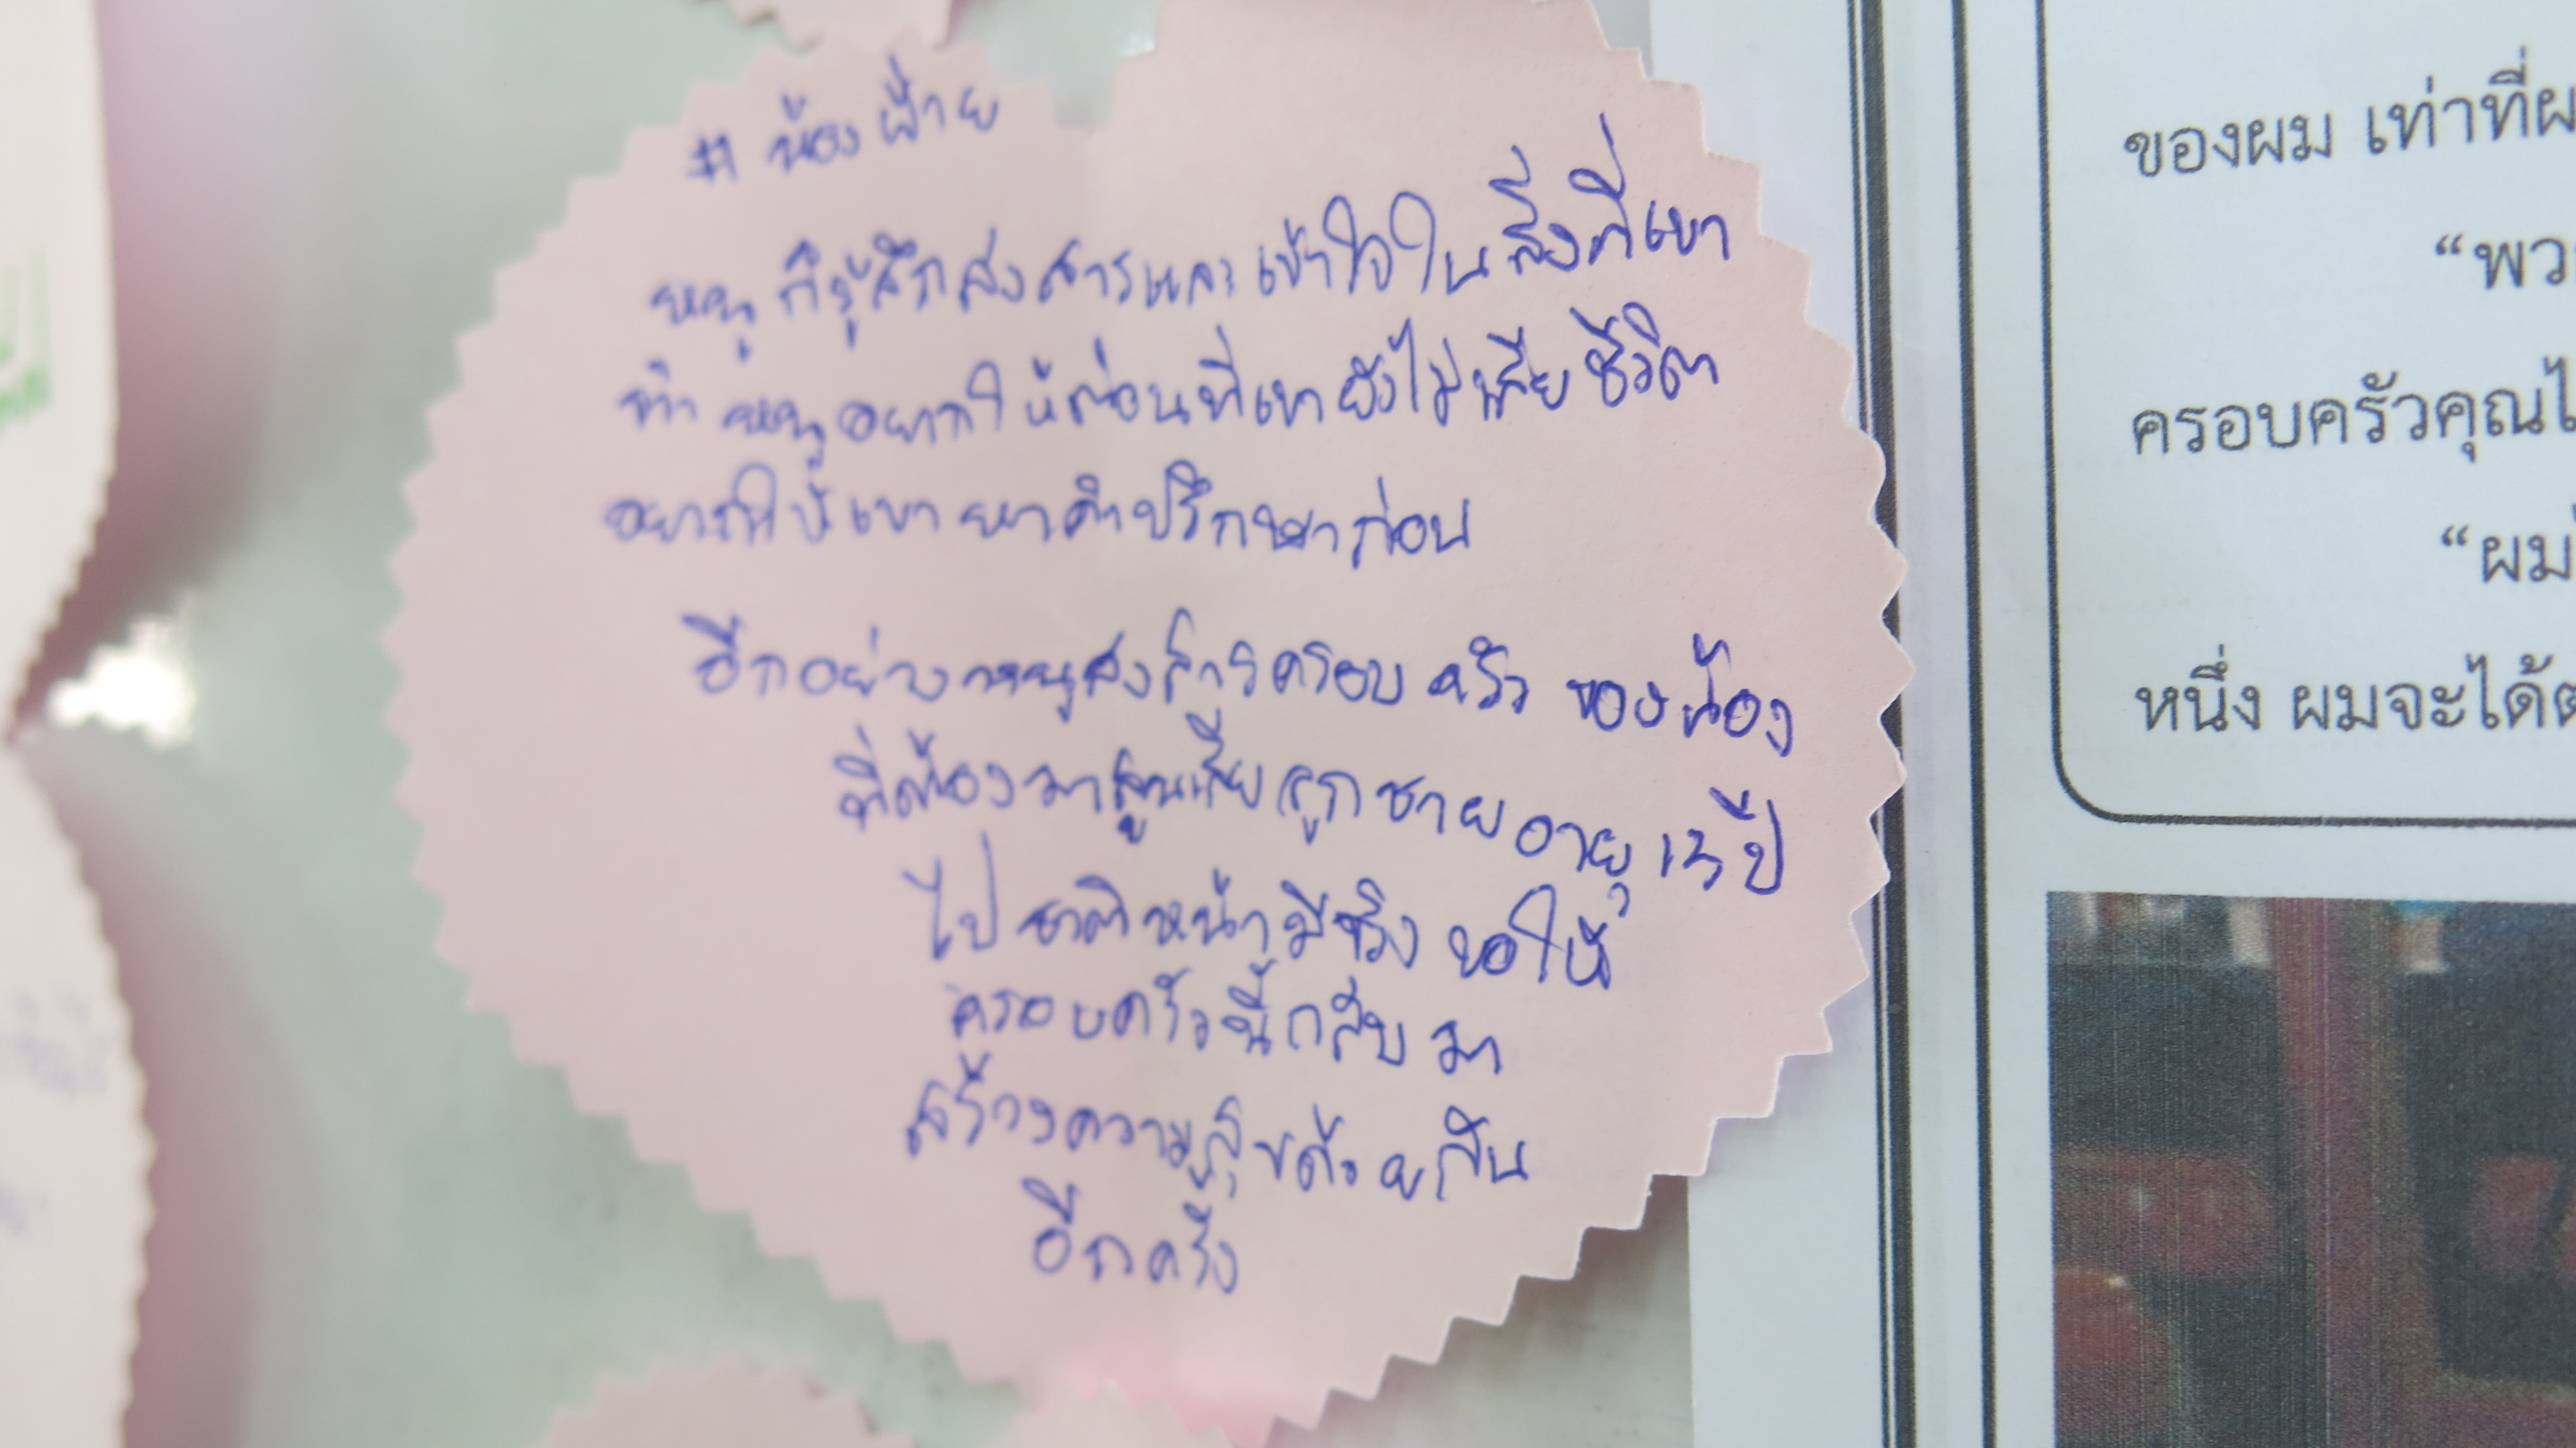 # น้องฝ้าย
หนูก็รู้สึกสงสารและเข้าใจในสิ่งที่เขา
ทำ หนูอยากให้ก่อนที่เขายังไม่เสียชีวิต
อยากให้เขาหาคำปรึกษาก่อน
อีกอย่างหนูสงสารครอบครัว ของน้อง
ที่ต้องมาสูญเสียลูกชายอายุ 13 ปี
ไป ชาติหน้ามีจริง ขอให้
ครอบครัวนี้กลับมา
สร้างความสุขด้วยกัน
อีกครั้ง
ของผม เท่าที่ผ
“พว
ครอบครัวคุณไ
“ผม
หนึ่ง ผมจะได้ต